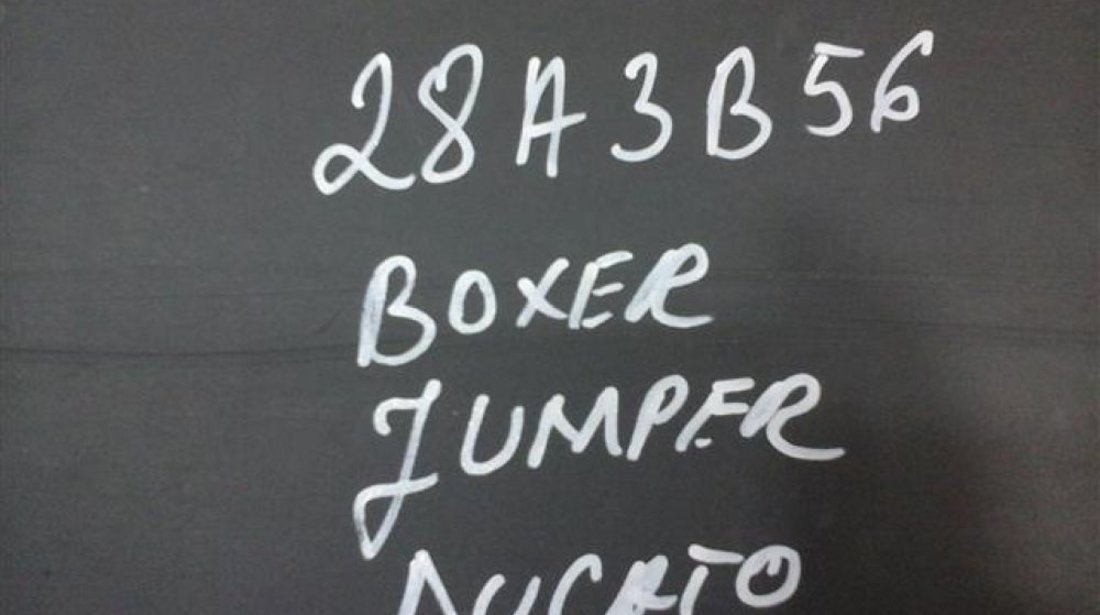 28A3B56
BOXER
JUMPER
DUCATO